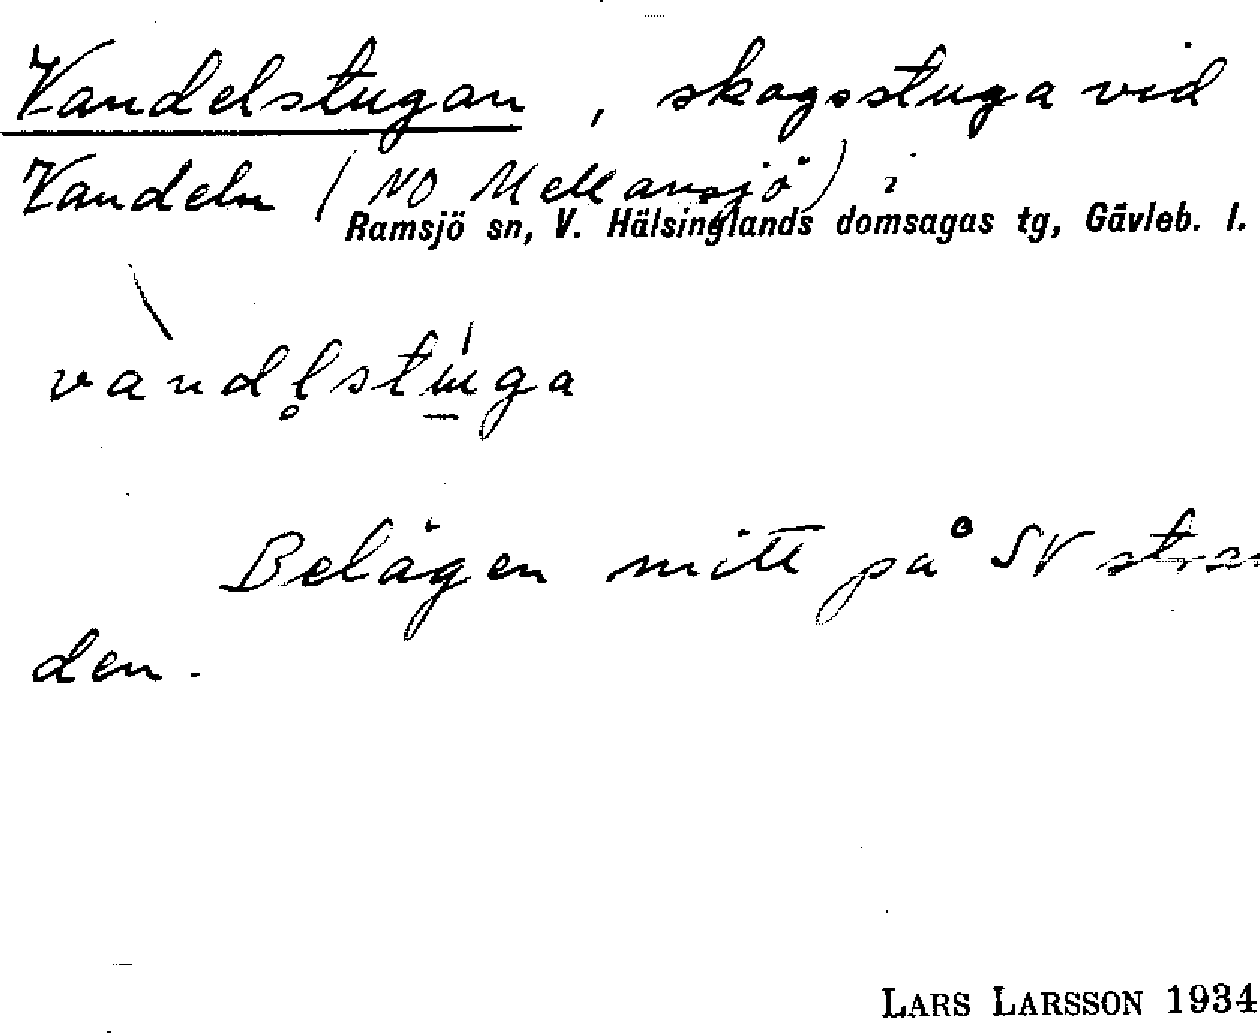 Vandelstugan, skogsstuga vid
Vandeln (NO Mellansjö) i
Ramsjö sn, V. Hälsinglands domsagas tg, Gävleb. l.
vàndl̥stú̲ga
Belägen mitt på SV stran
den.
LARS LARSSON 1934